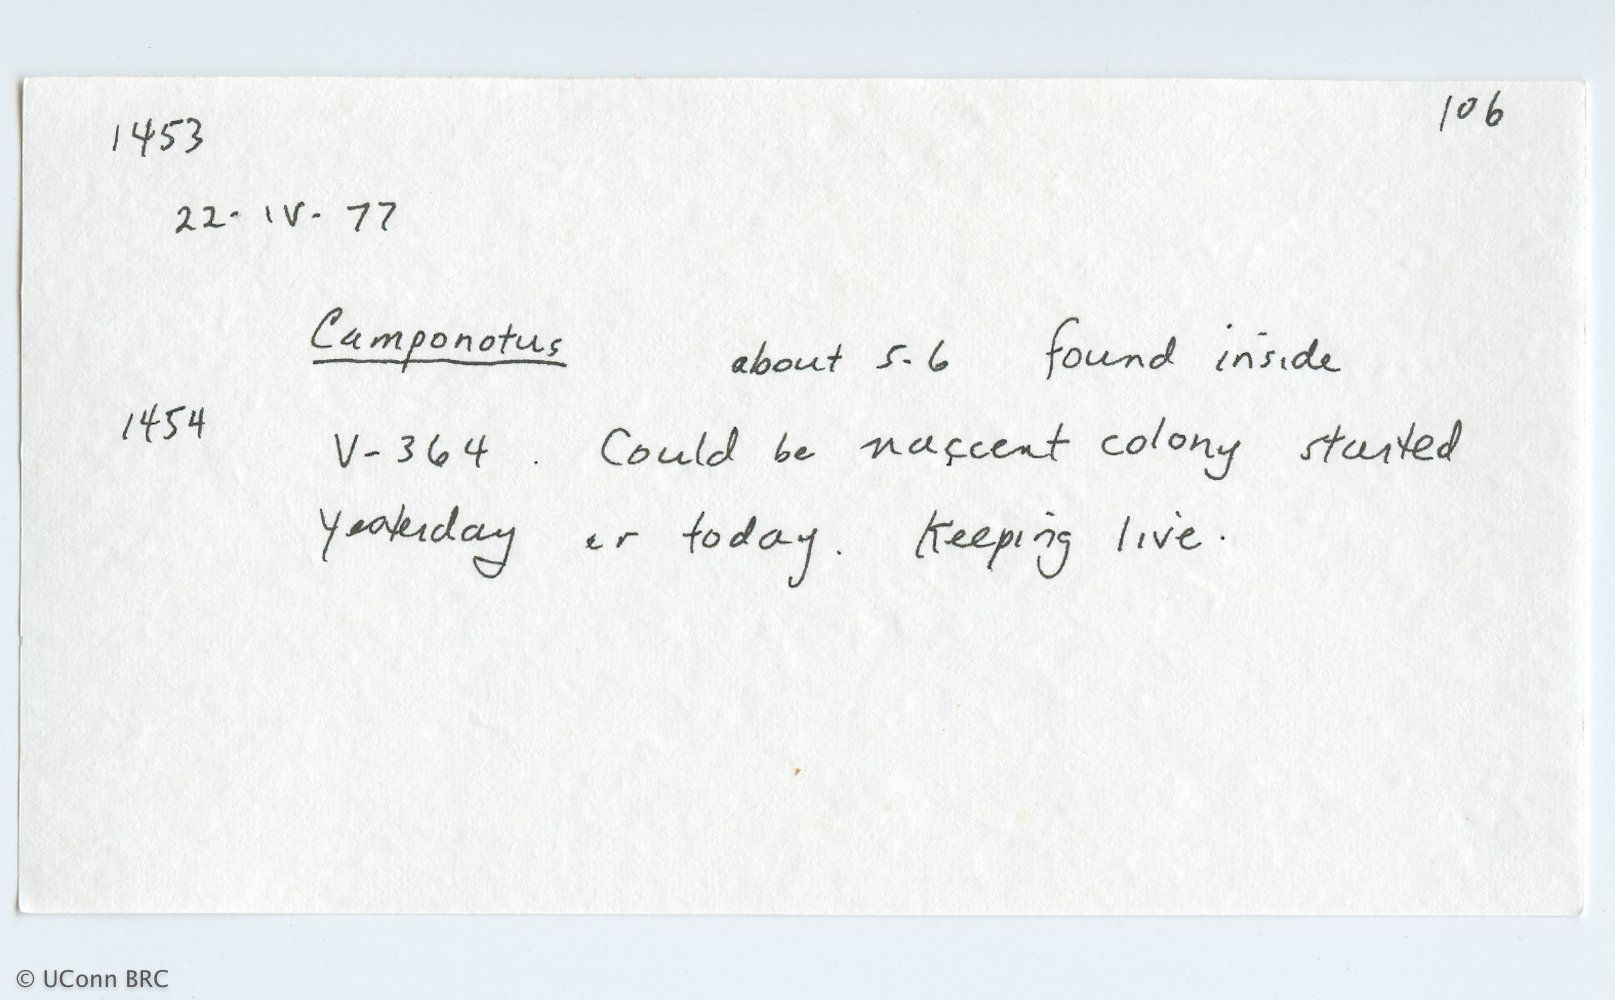 1453
106
22-IV-77
Camponotus about 5-6 found inside
1454
V-364. Could be nascent colony started
yesterday or today. Keeping live.
© UConn BRC